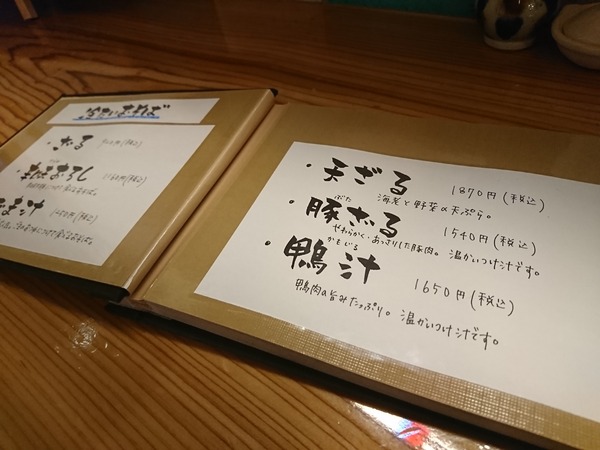 冷たいおそば
・ざる
おろし
ごま汁
・天ざる 1870円(税込)
海老と野菜の天ぷら。
ぶた
・豚ざる 1540円(税込)
やわらかく、あっさりした豚肉。温かいつけ汁です。
かもじる
・鴨汁 1650円(税込)
鴨肉の旨みたっぷり。温かいつけ汁です。